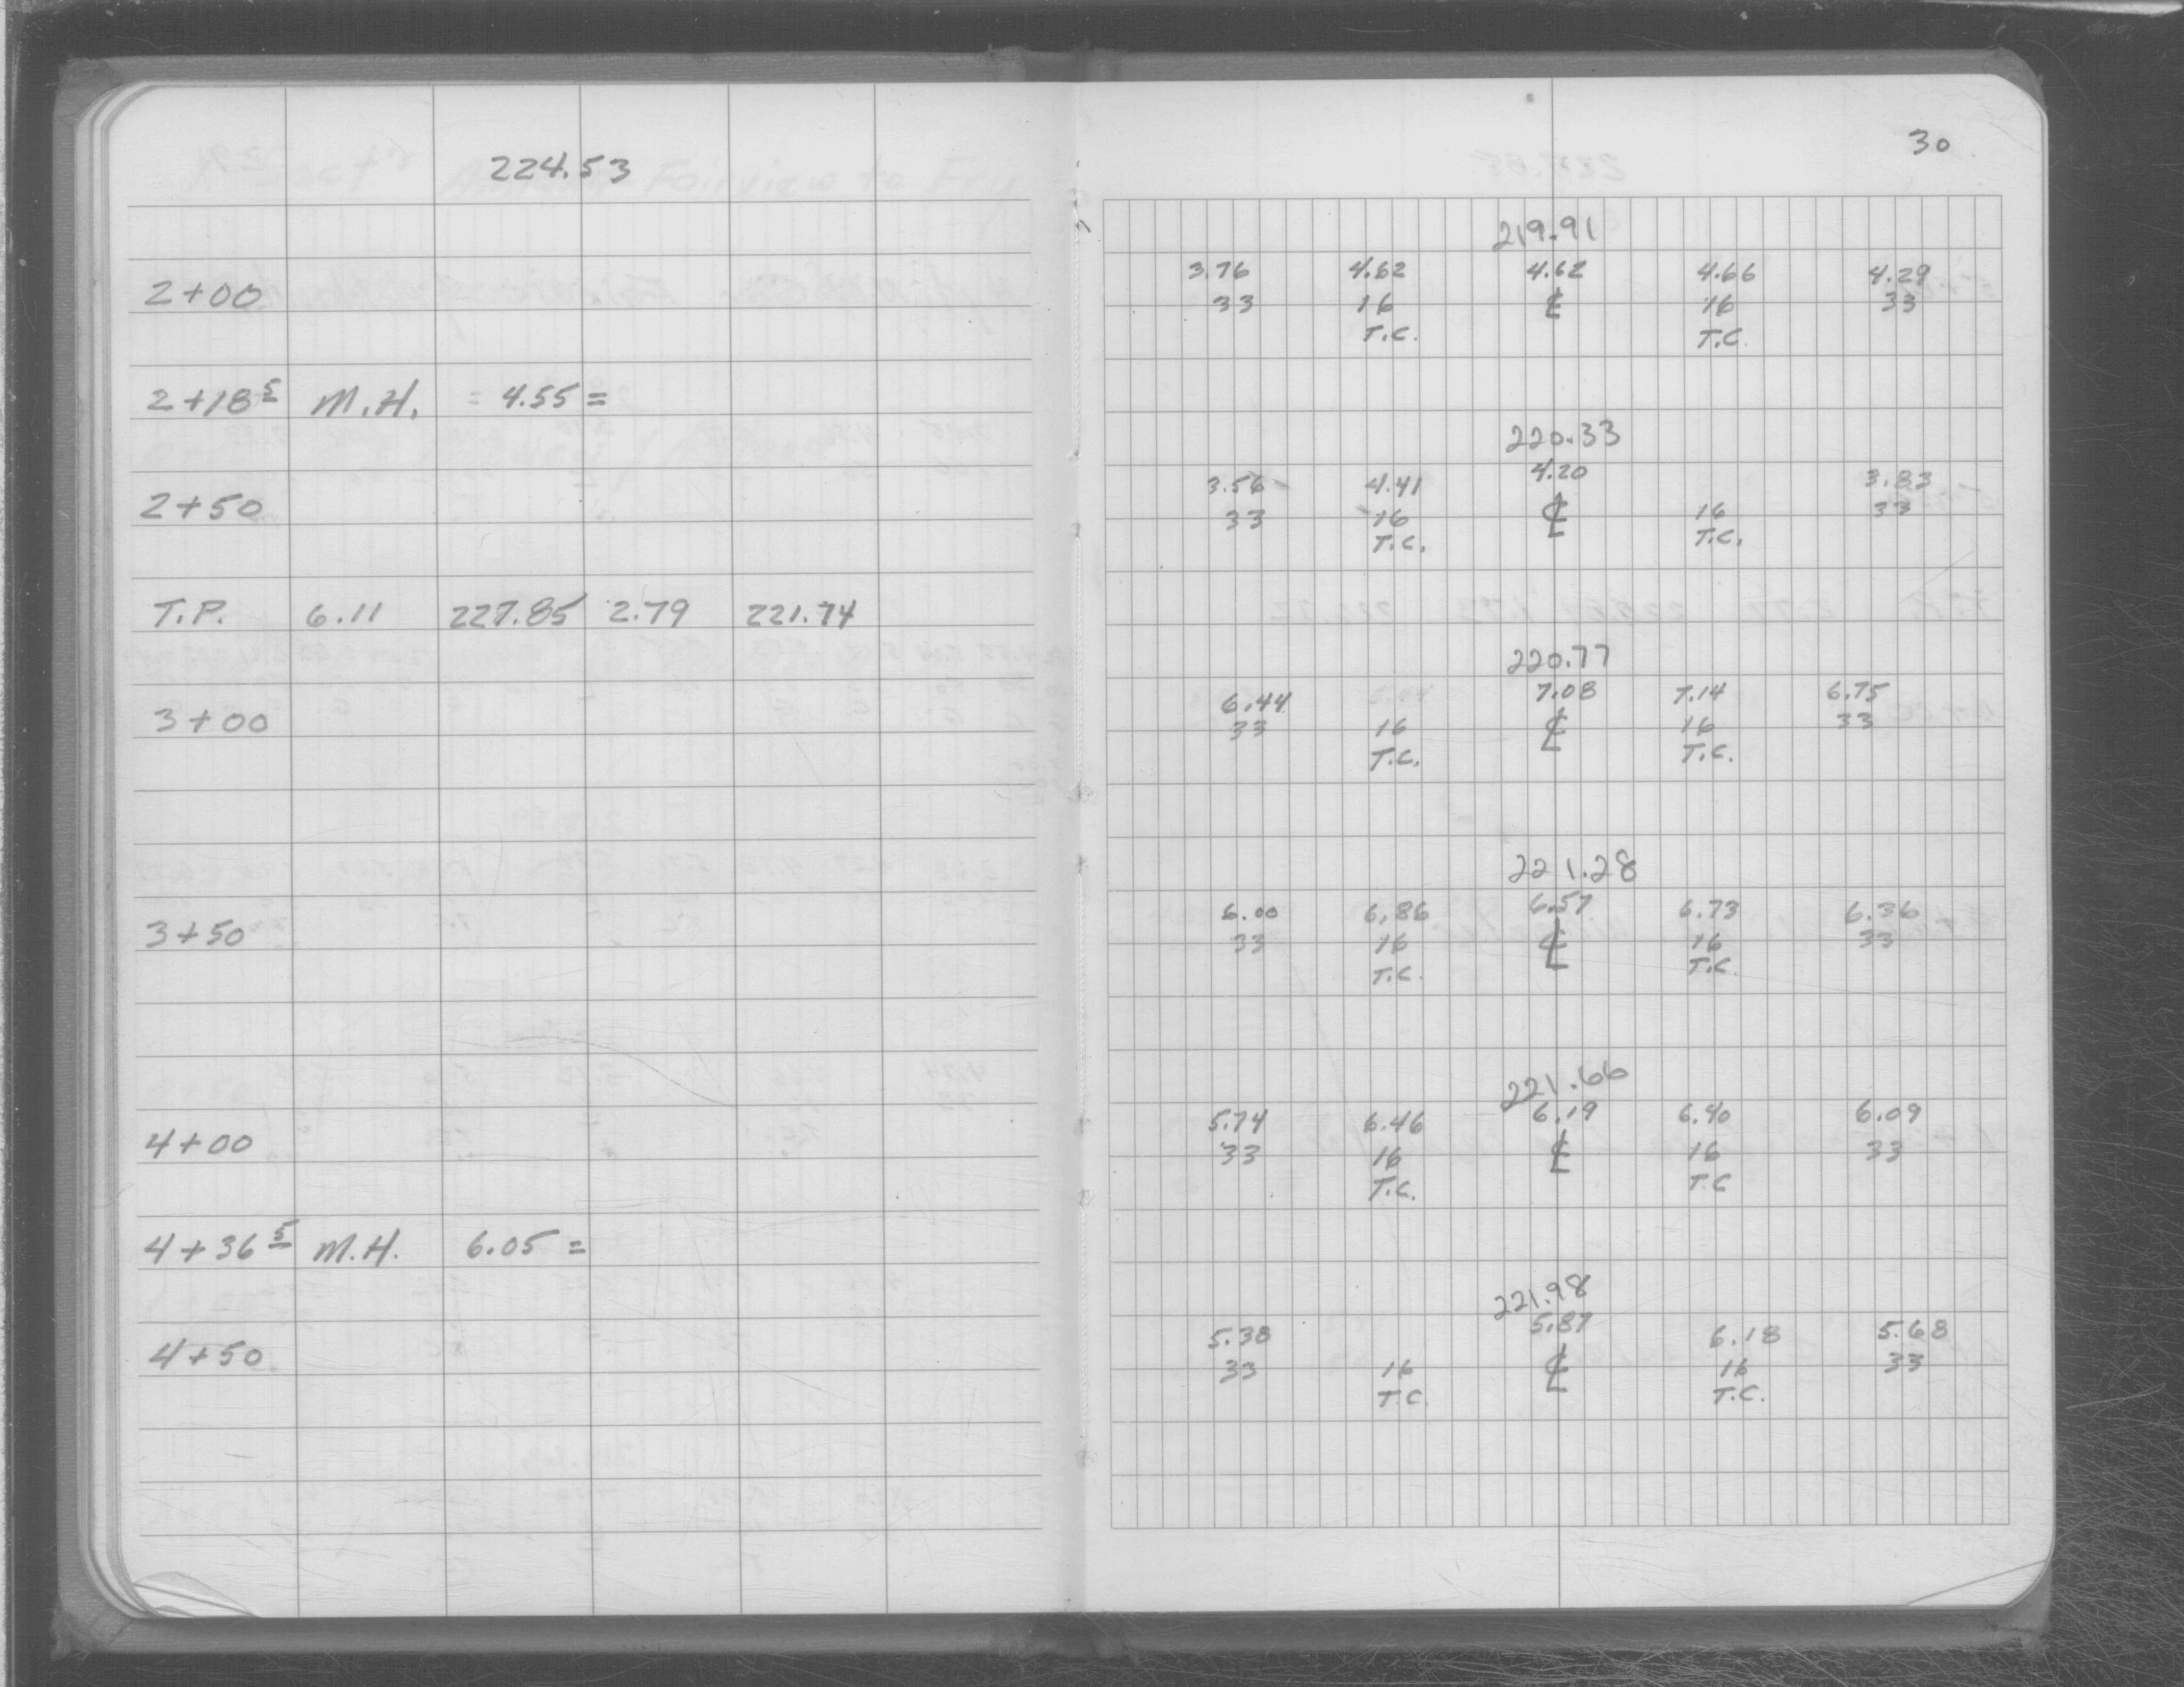 224.53
2+00
2+18 5 M.H. = 4.55 =
2+50
T.P. 6.11 227.85 2.79 221.74
3+00
3+50
4+00
4+36 5 M.H. 6.05 =
4+50
30
219.91
3.76 4.62 4.62 4.66 4.29
33 16 ℄ 16 33
T.C. T.C.
220.33
3.56 4.41 4.20 3.83
33 16 ℄ 16 33
T.C. T.C.
220.77
6.44 7.08 7.14 6.75
33 16 ℄ 16 33
T.C. T.C.
221.28
6.00 6.86 6.57 6.73 6.36
33 16 ℄ 16 33
T.C. T.C.
221.66
5.74 6.46 6.19 6.40 6.09
33 16 ℄ 16 33
T.C. T.C
221.98
5.38 5.87 6.18 5.68
33 16 ℄ 16 33
T.C. T.C.